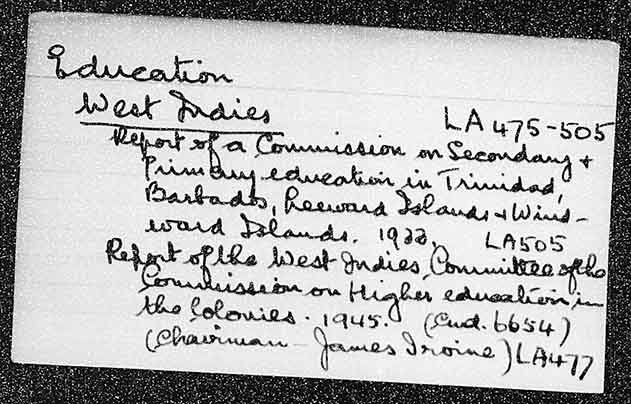 Education
West Indies LA475-505
Report of a Commission on Secondary +
Primary education in Trinidad,
Barbados, Leeward Islands + Wind-
ward Islands. 1933. LA505
Report of the West Indies Committee of the
Commission on Higher education in
the Colonies. 1945. (Cmd. 6654)
(Chairman - James Irvine) LA477